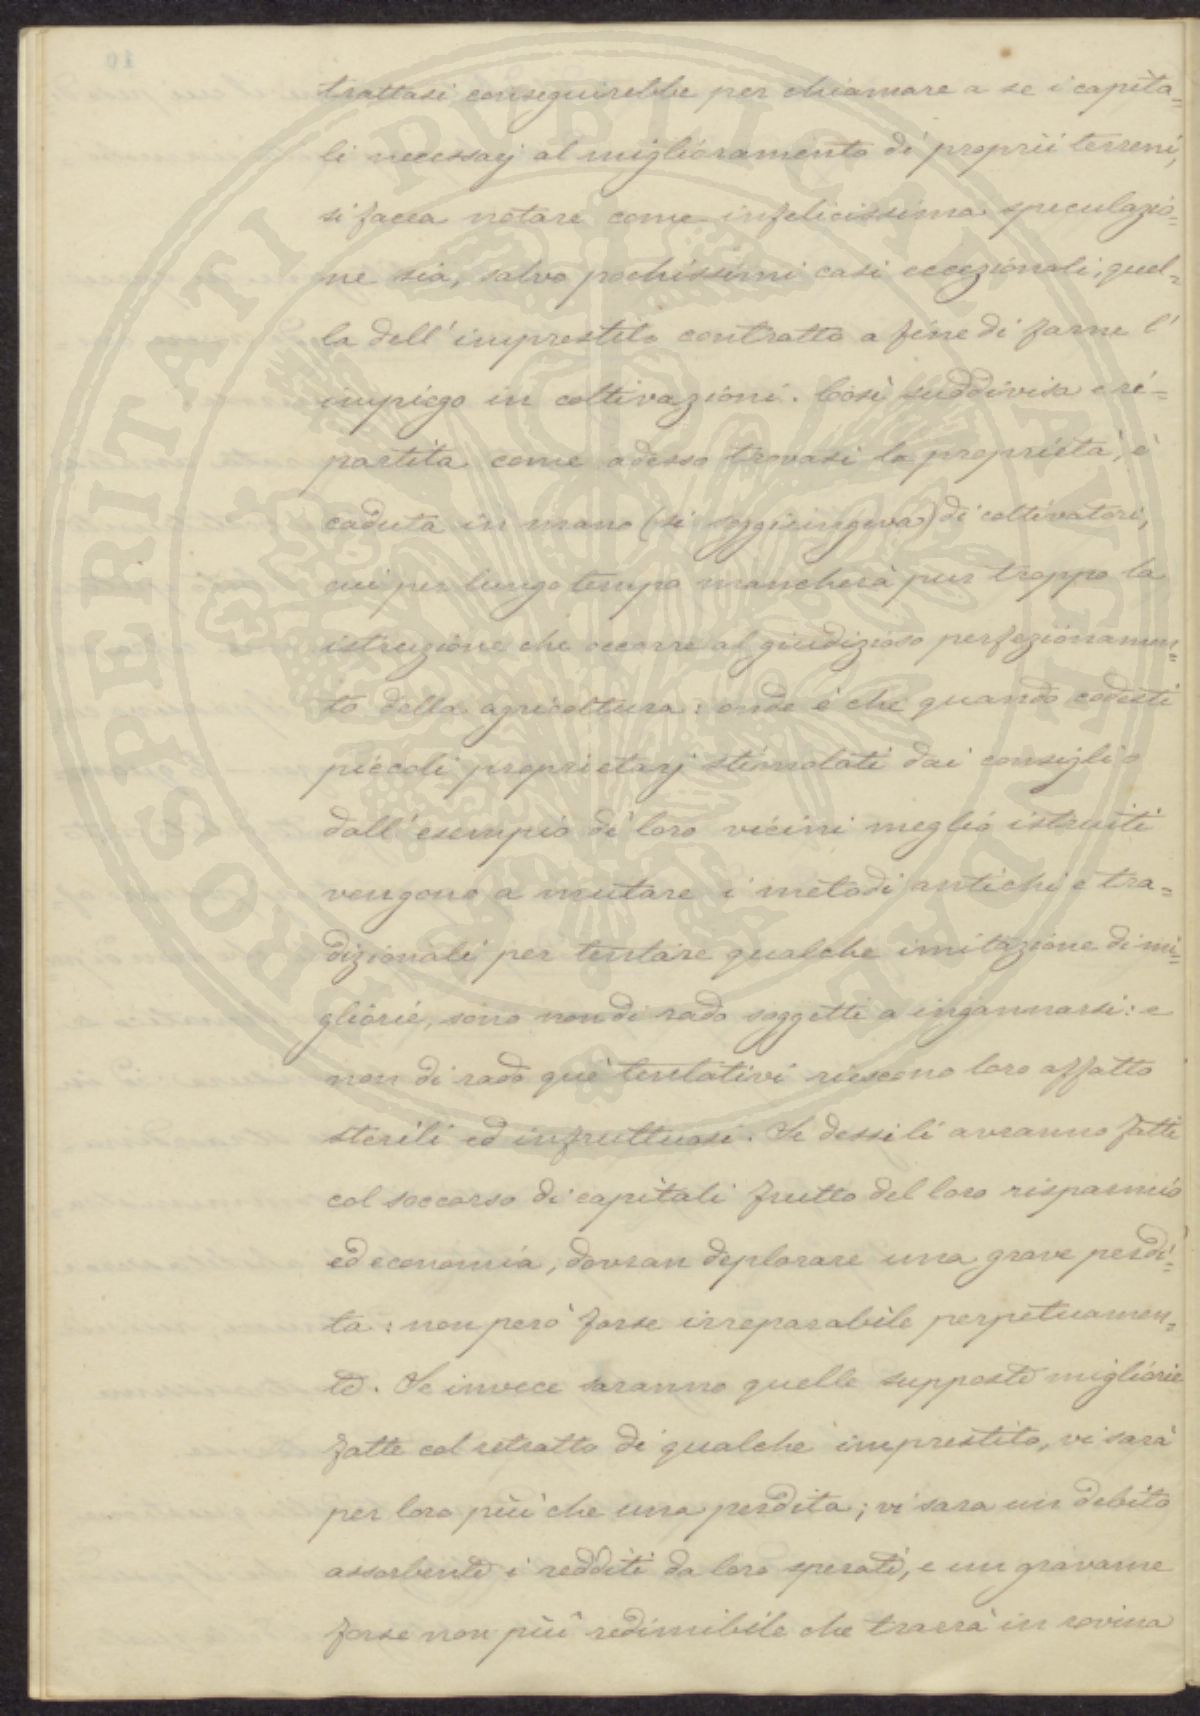 trattasi conseguirebbe per chiamare a se i capita=
li necessarj al miglioramento di proprii terreni,
si facea notare come infelicissima speculazio=
ne sia, salvo pochissimi casi eccezionali, quel=
la dell'imprestito contratto a fine di farne l'
impiego in coltivazioni. Così suddivisa e ri=
partita come adesso trovasi la proprietà, è
caduta in mano (si soggiungeva) di coltivatori,
cui per lungo tempo mancherà pur troppo la
istruzione che occorre al giudizioso perfezionamen=
to della agricoltura: onde è che quando codesti
piccoli proprietarj stimolati dai consigli o
dall'esempio di loro vicini meglio istruiti
vengono a mutare i metodi antichi e tra=
dizionali per tentare qualche imitazione di mi=
gliorie, sono non di rado soggetti a ingannarsi: e
non di rado què tentativi riescono loro affatto
sterili ed infruttuosi. Se dessi li avranno fatti
col soccorso di capitali frutto del loro risparmio
ed economia, dovran deplorare una grave perdi=
ta: non però forse irreparabile perpetuamen=
te. Se invece saranno quelle supposte migliorie
fatte col retratto di qualche imprestito, vi sarà
per loro più che una perdita; vi sara un debito
assorbente i redditi da loro sperati, e un gravame
forse non più redimibile che traerà in rovina
PROSPERITATI PUBLICAE AUGENDAE
10